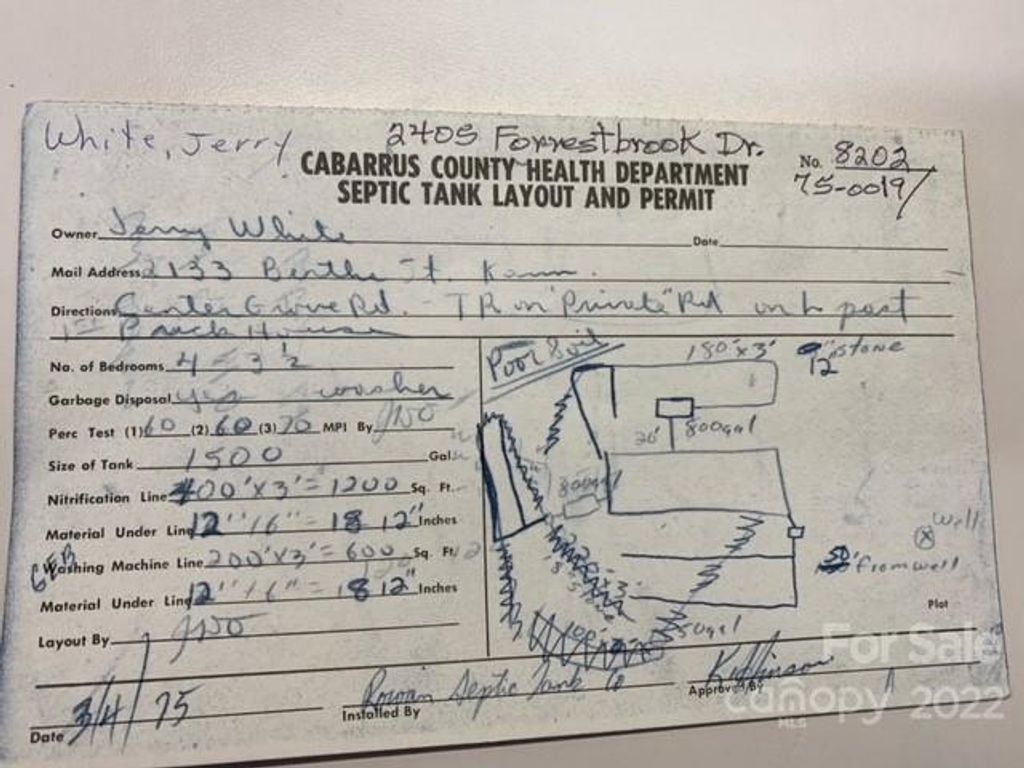 White, Jerry
2405 Forrestbrook Dr.
CABARRUS COUNTY HEALTH DEPARTMENT
SEPTIC TANK LAYOUT AND PERMIT
No. 8202
75-0019
Owner Jerry White Date
Mail Address 2133 Berthe St. Kann.
Directions Center Grove Rd. - TR on "Private" Rd on L past
1st Brick House
No. of Bedrooms 4 - 3 1/2
Garbage Disposal yes washer
Perc Test (1) 60 (2) 60 (3) 70 MPI By
Size of Tank 1500 Gal.
Nitrification Line 400'x3' = 1200 Sq. Ft.
Material Under Line 12" / 6" = 18 12" Inches
Washing Machine Line 200'x3' = 600 Sq. Ft.
Material Under Line 12" / 6" = 18 12" Inches
Layout By
Poor Soil
180'x3'
12" stone
20'
800gal
800gal
Well
from well
Plot
Date 3/4/75
Installed By Rowan Septic Tank Co
Approved By
For Sale
canopy 2022
MLS